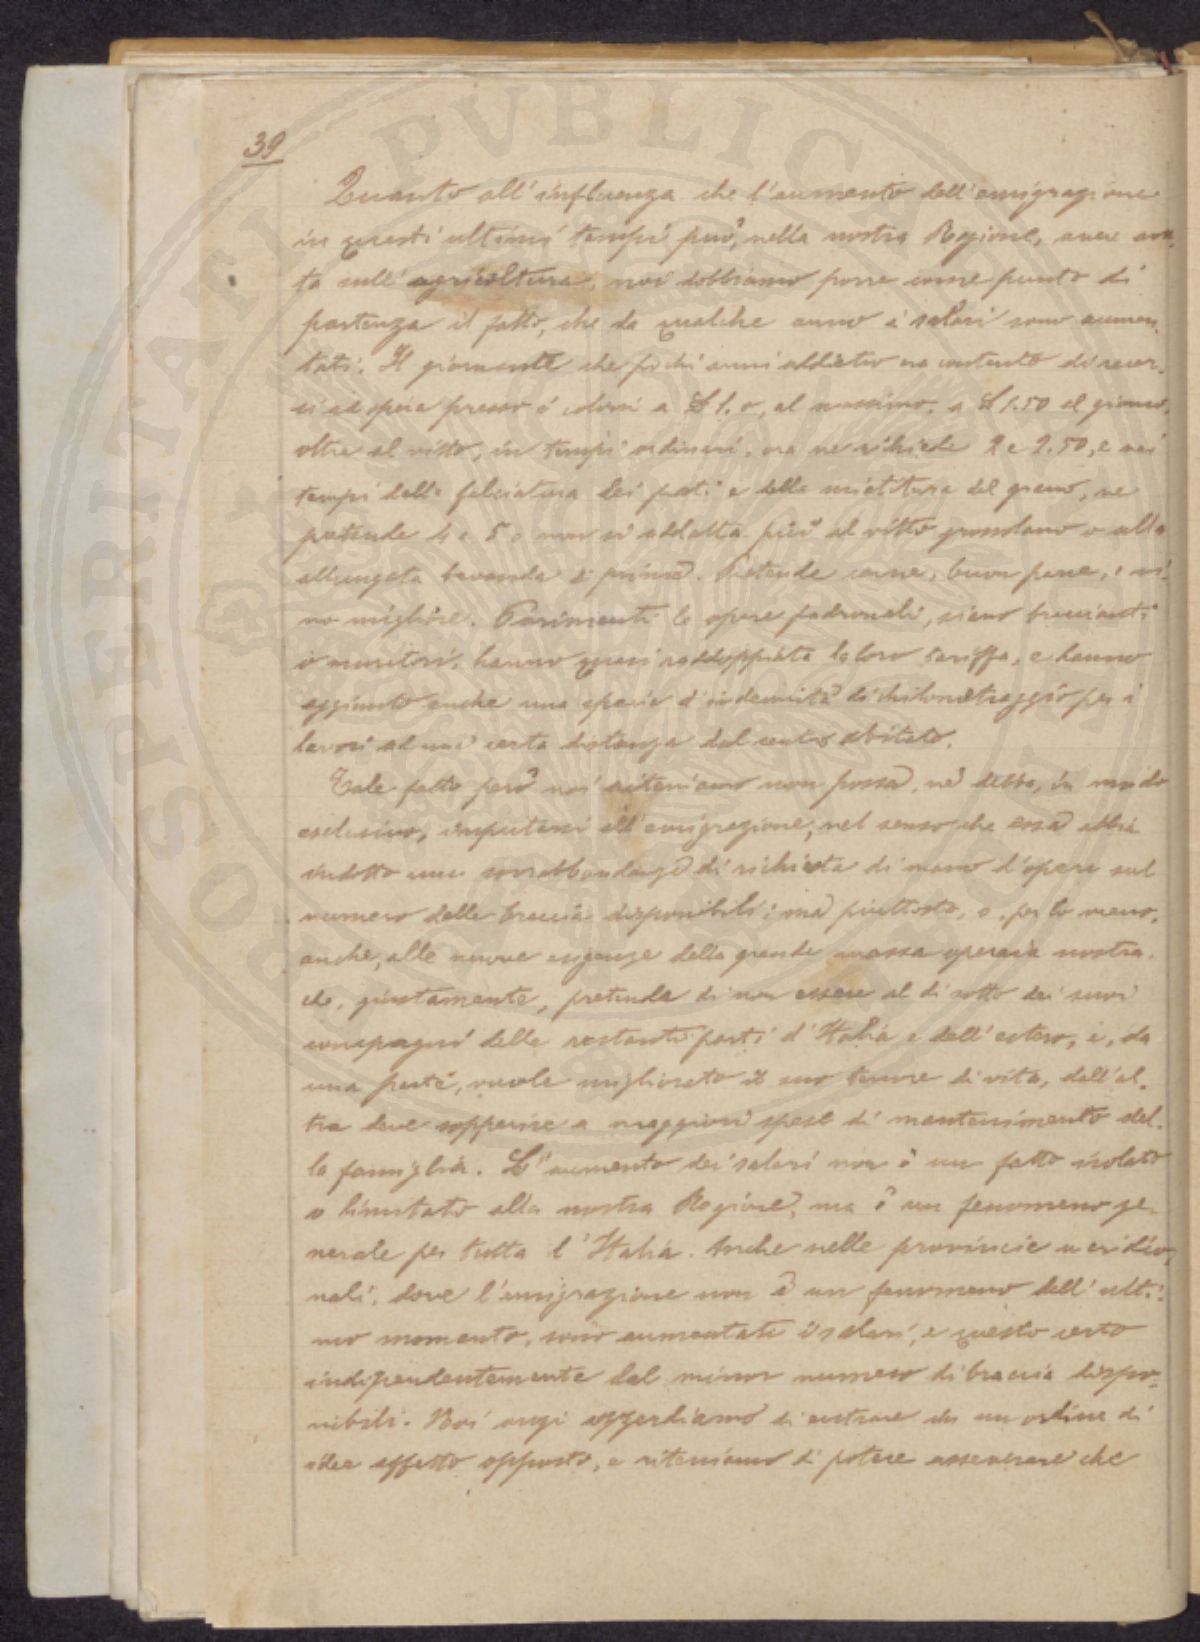 PROSPERITATI PVBLICAE
39
Quanto all'influenza che l'aumento dell'emigrazione
in questi ultimi tempi può, nella nostra Regione, avere avu-
ta sull'agricoltura, noi dobbiamo porre come punto di
partenza il fatto, che da qualche anno i salari sono aumen-
tati. Il giornante che pochi anni addietro era contento di recar-
si ad opera presso i coloni a £ 1. o, al massimo, a £ 1.50 al giorno,
oltre al vitto, in tempi ordinari, ora ne richiede 2 e 2.50, e nei
tempi della falciatura dei prati e della mietitura del grano, ne
pretende 4 e 5 e non si addatta più al vitto grossolano o alla
allungata bevanda di prima. Pretende carne, buon pane, e vi-
no migliore. Parimenti le opere padronali, siano braccianti
o muratori, hanno quasi raddoppiata la loro tariffa, e hanno
aggiunto anche una specie d'indennità di chilometraggio per i
lavori ad una certa distanza dal centro abitato.
Tale fatto però noi riteniamo non possa, nè debba, in modo
esclusivo, imputarsi all'emigrazione, nel senso che essa abbia
indotto una sovrabbondanza di richiesta di mano d'opera sul
numero delle braccia disponibili; ma piuttosto, o, per lo meno,
anche, alle nuove esigenze della grande massa operaia nostra,
che, giustamente, pretende di non essere al di sotto dei suoi
compagni delle restanti parti d'Italia e dell'estero, e, da
una parte, vuole migliorato il suo tenore di vita, dall'al-
tra deve sopperire a maggiori spese di mantenimento del-
la famiglia. L'aumento dei salari non è un fatto isolato
o limitato alla nostra Regione, ma è un fenomeno ge-
nerale per tutta l'Italia. Anche nelle provincie meridio-
nali, dove l'emigrazione non è un fenomeno dell'ulti-
mo momento, sono aumentati i salari, e questo certo
indipendentemente dal minor numero di braccia dispo-
nibili. Noi anzi azzardiamo di entrare in un ordine di
idee affatto opposto, e riteniamo di potere asseverare che